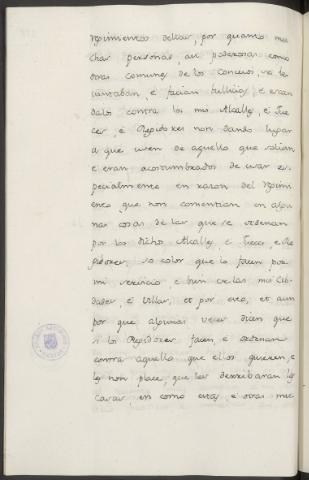 regimientos dellas, por quanto mu
chas personas, asi poderosas como
otras comunes de los Concejos, se le
vantaban, e facian bullicios, e escan
dalos contra los mis Alcalles, e Jue
ces, e Regidores non dando lugar
a que usen de aquello que solian
e eran acostumbrados de usar es
pecialmente en razon del Regim
iento, que non consentian en algu
nas cosas de las que se ordenan
por los dichos Alcalles, e Jueces, e Re
gidores, so color que lo facen por
mi servicio, e bien de las mis Cib
dades, e Villas, et por esto, et aun
por que algunas veces dicen que
si los Regidores facen, e ordenan
contra aquello que ellos quieren, e
les non place, que les derribaran las
Casas, en como estas, e otras mu